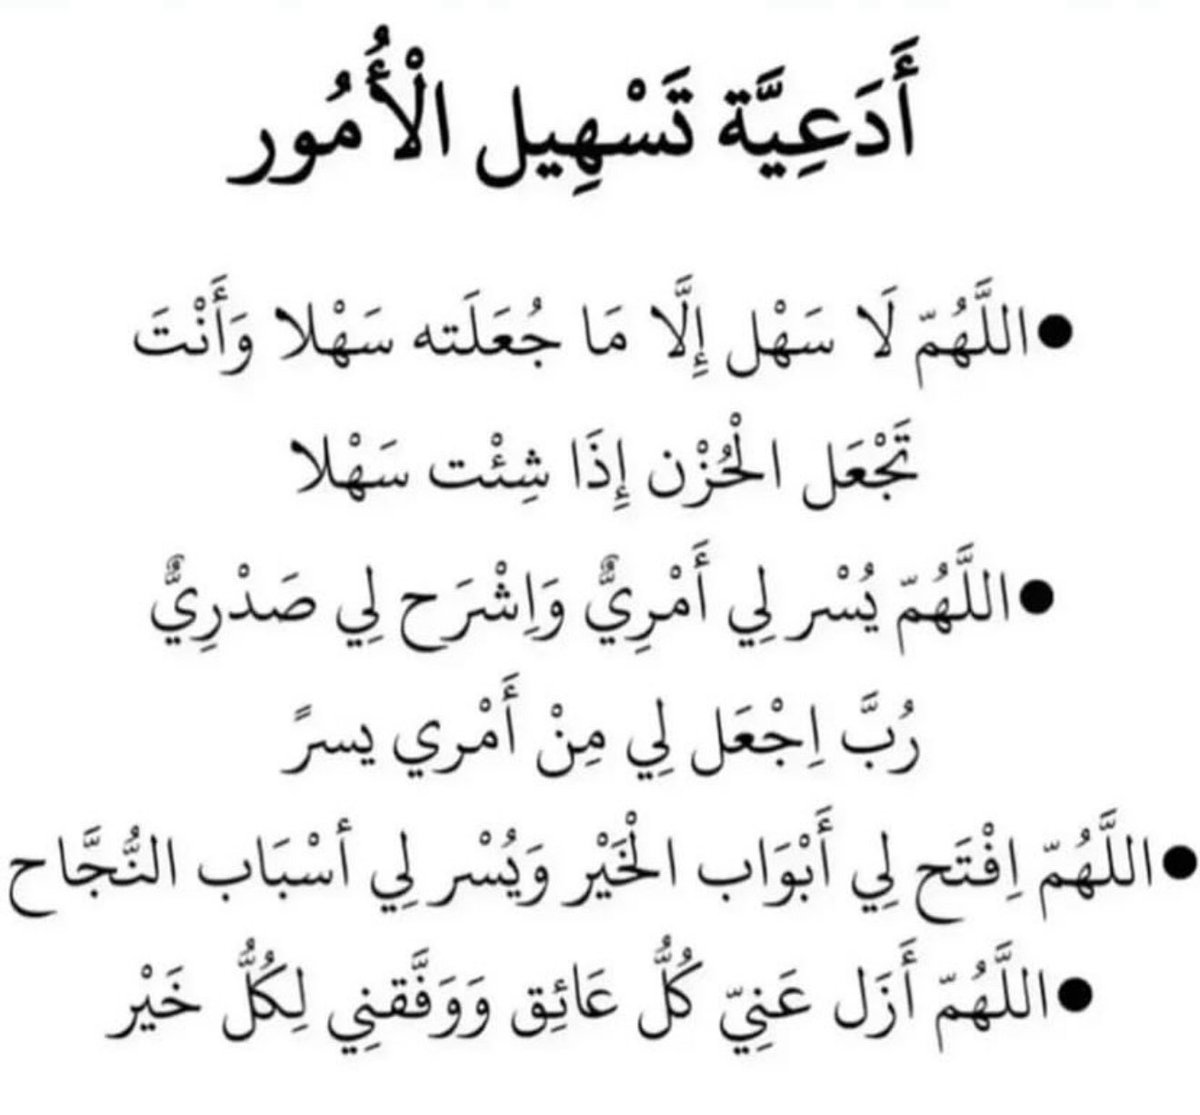 أَدَعِيَّة تَسْهِيل الْأُمُور
●اللَّهُمّ لَا سَهْل إِلَّا مَا جُعَلَته سَهْلا وَأَنْتَ
تَجْعَل الْحُزْن إِذَا شِئْت سَهْلا
●اللَّهُمّ يُسْر لِي أَمْرِيٌّ وَاِشْرَح لِي صَدْرِيٌّ
رُبَّ اِجْعَل لِي مِنْ أَمْري يسرً
●اللَّهُمّ اِفْتَح لِي أَبْوَاب الْخَيْر وَيُسْر لِي أسْبَاب النُّجَّاح
●اللَّهُمّ أَزَل عَنِيّ كُلُّ عَائِق وَوَفَّقنِي لِكُلُّ خَيْر